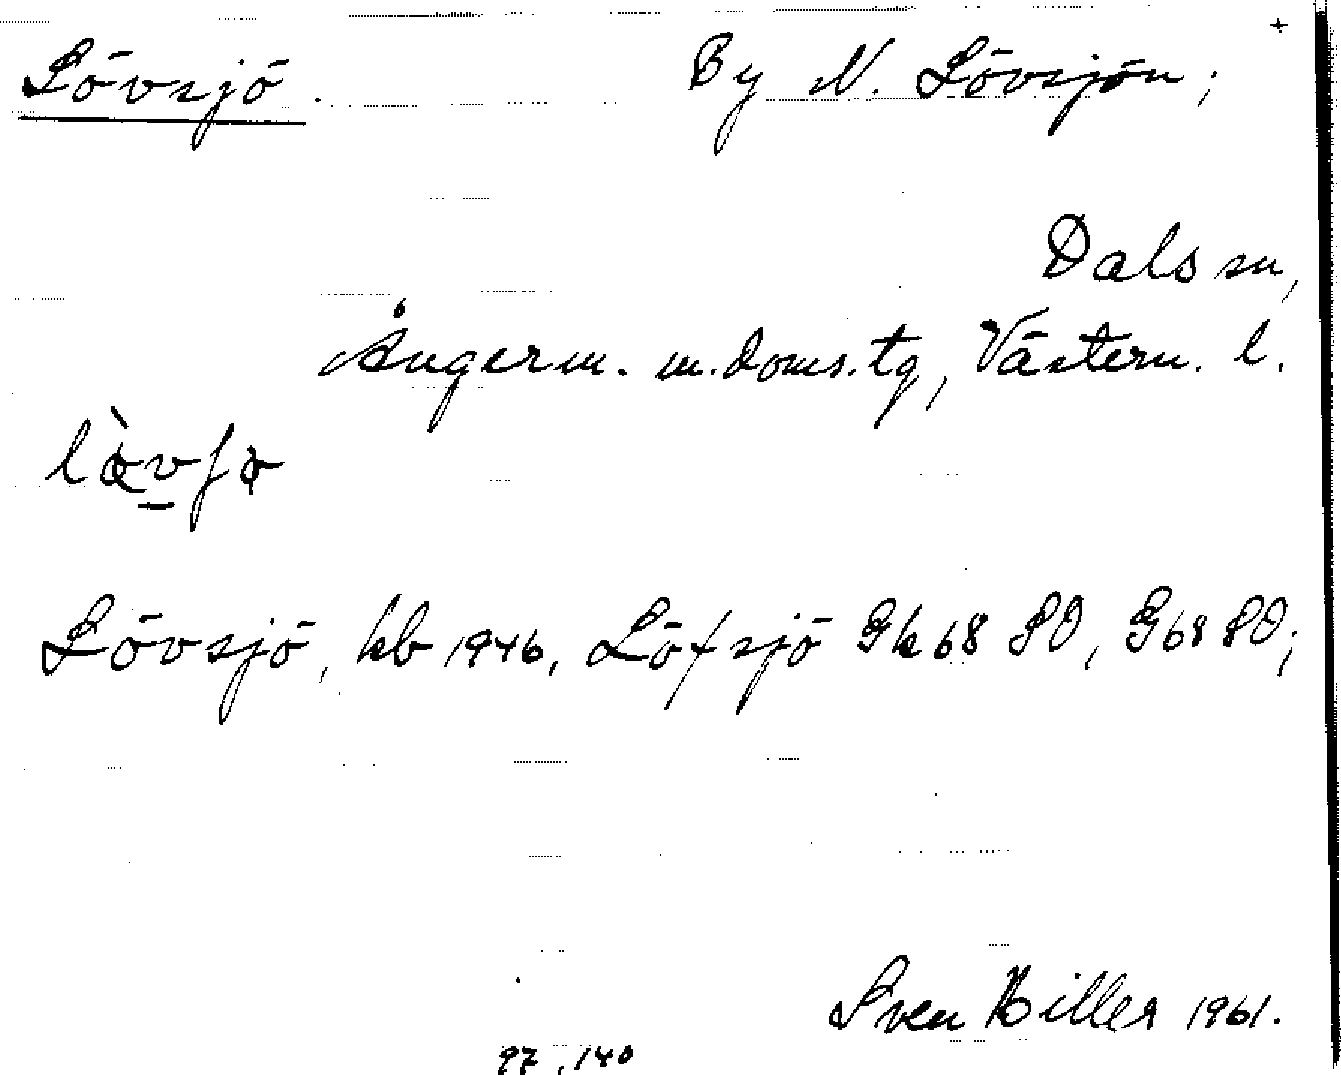 Lövsjö. By N. Lövsjön;
Dals sn,
Ångerm. m. doms. tg, Västern. l.
Lövsjö, kb 1946, Löfsjö Gk 68 SO, G 68 SO;
Sven Hiller 1961.
97, 140